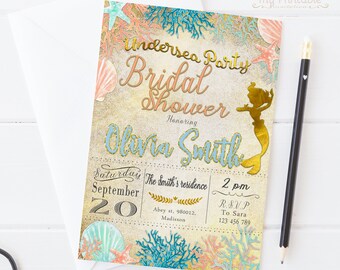 Undersea Party
Bridal
Shower
Honoring
Olivia Smith
Saturday
September
20
The Smith's residence
Abey st, 980012,
Madison
2 pm
R.S.V.P
To Sara
123 456 789